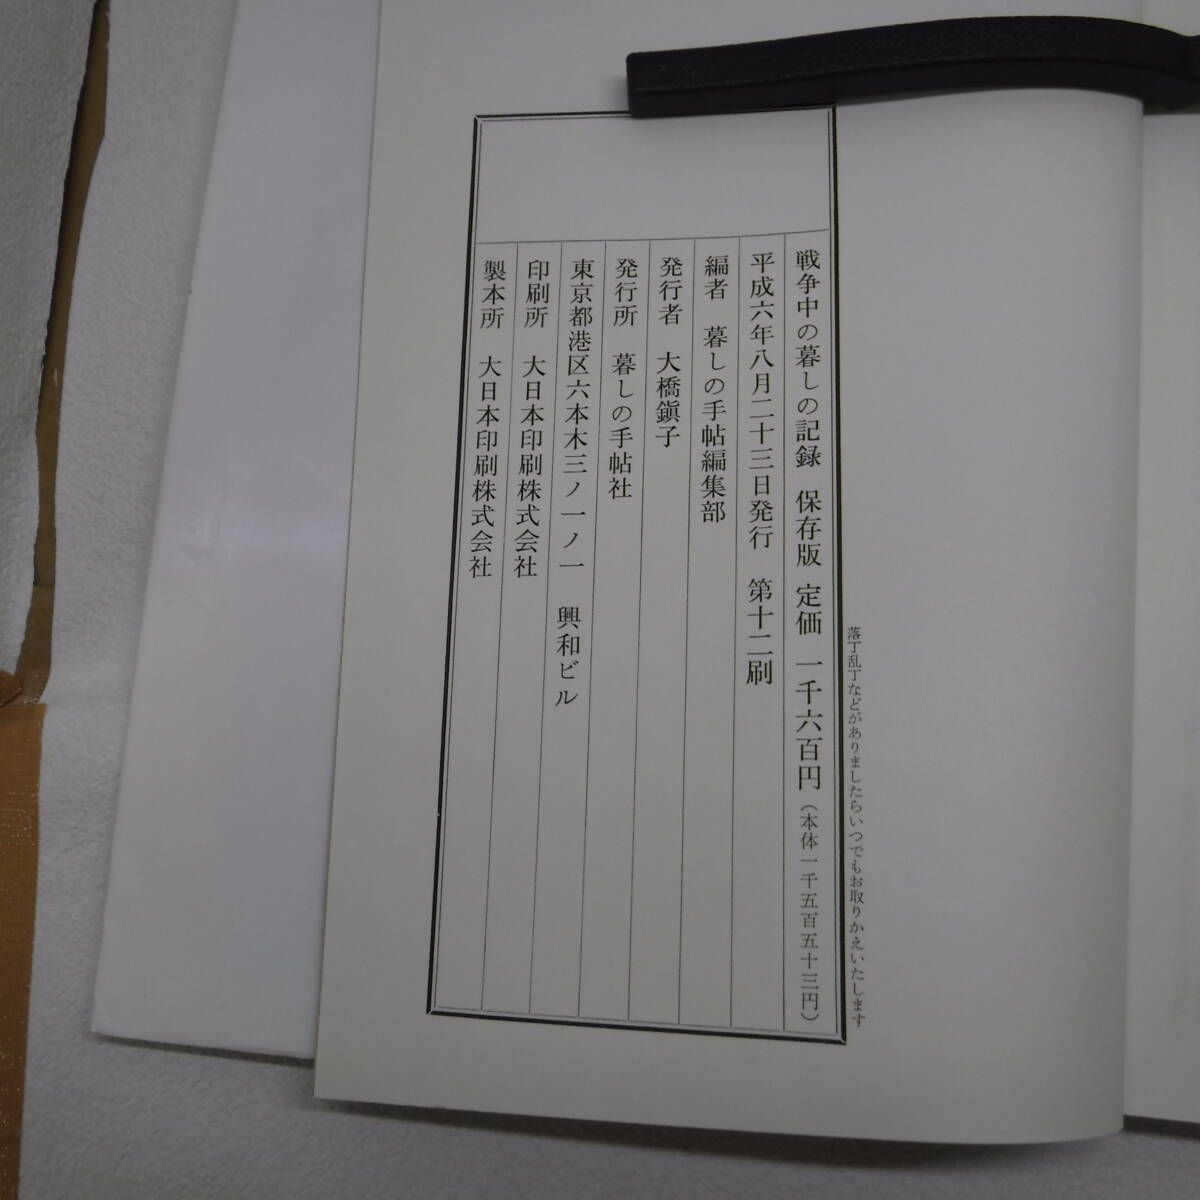 落丁乱丁などがありましたらいつでもお取りかえいたします
戦争中の暮しの記録　保存版　定価　一千六百円（本体一千五百五十三円）
平成六年八月二十三日発行　第十二刷
編者　暮しの手帖編集部
発行者　大橋鎭子
発行所　暮しの手帖社
東京都港区六本木三ノ一ノ一　興和ビル
印刷所　大日本印刷株式会社
製本所　大日本印刷株式会社